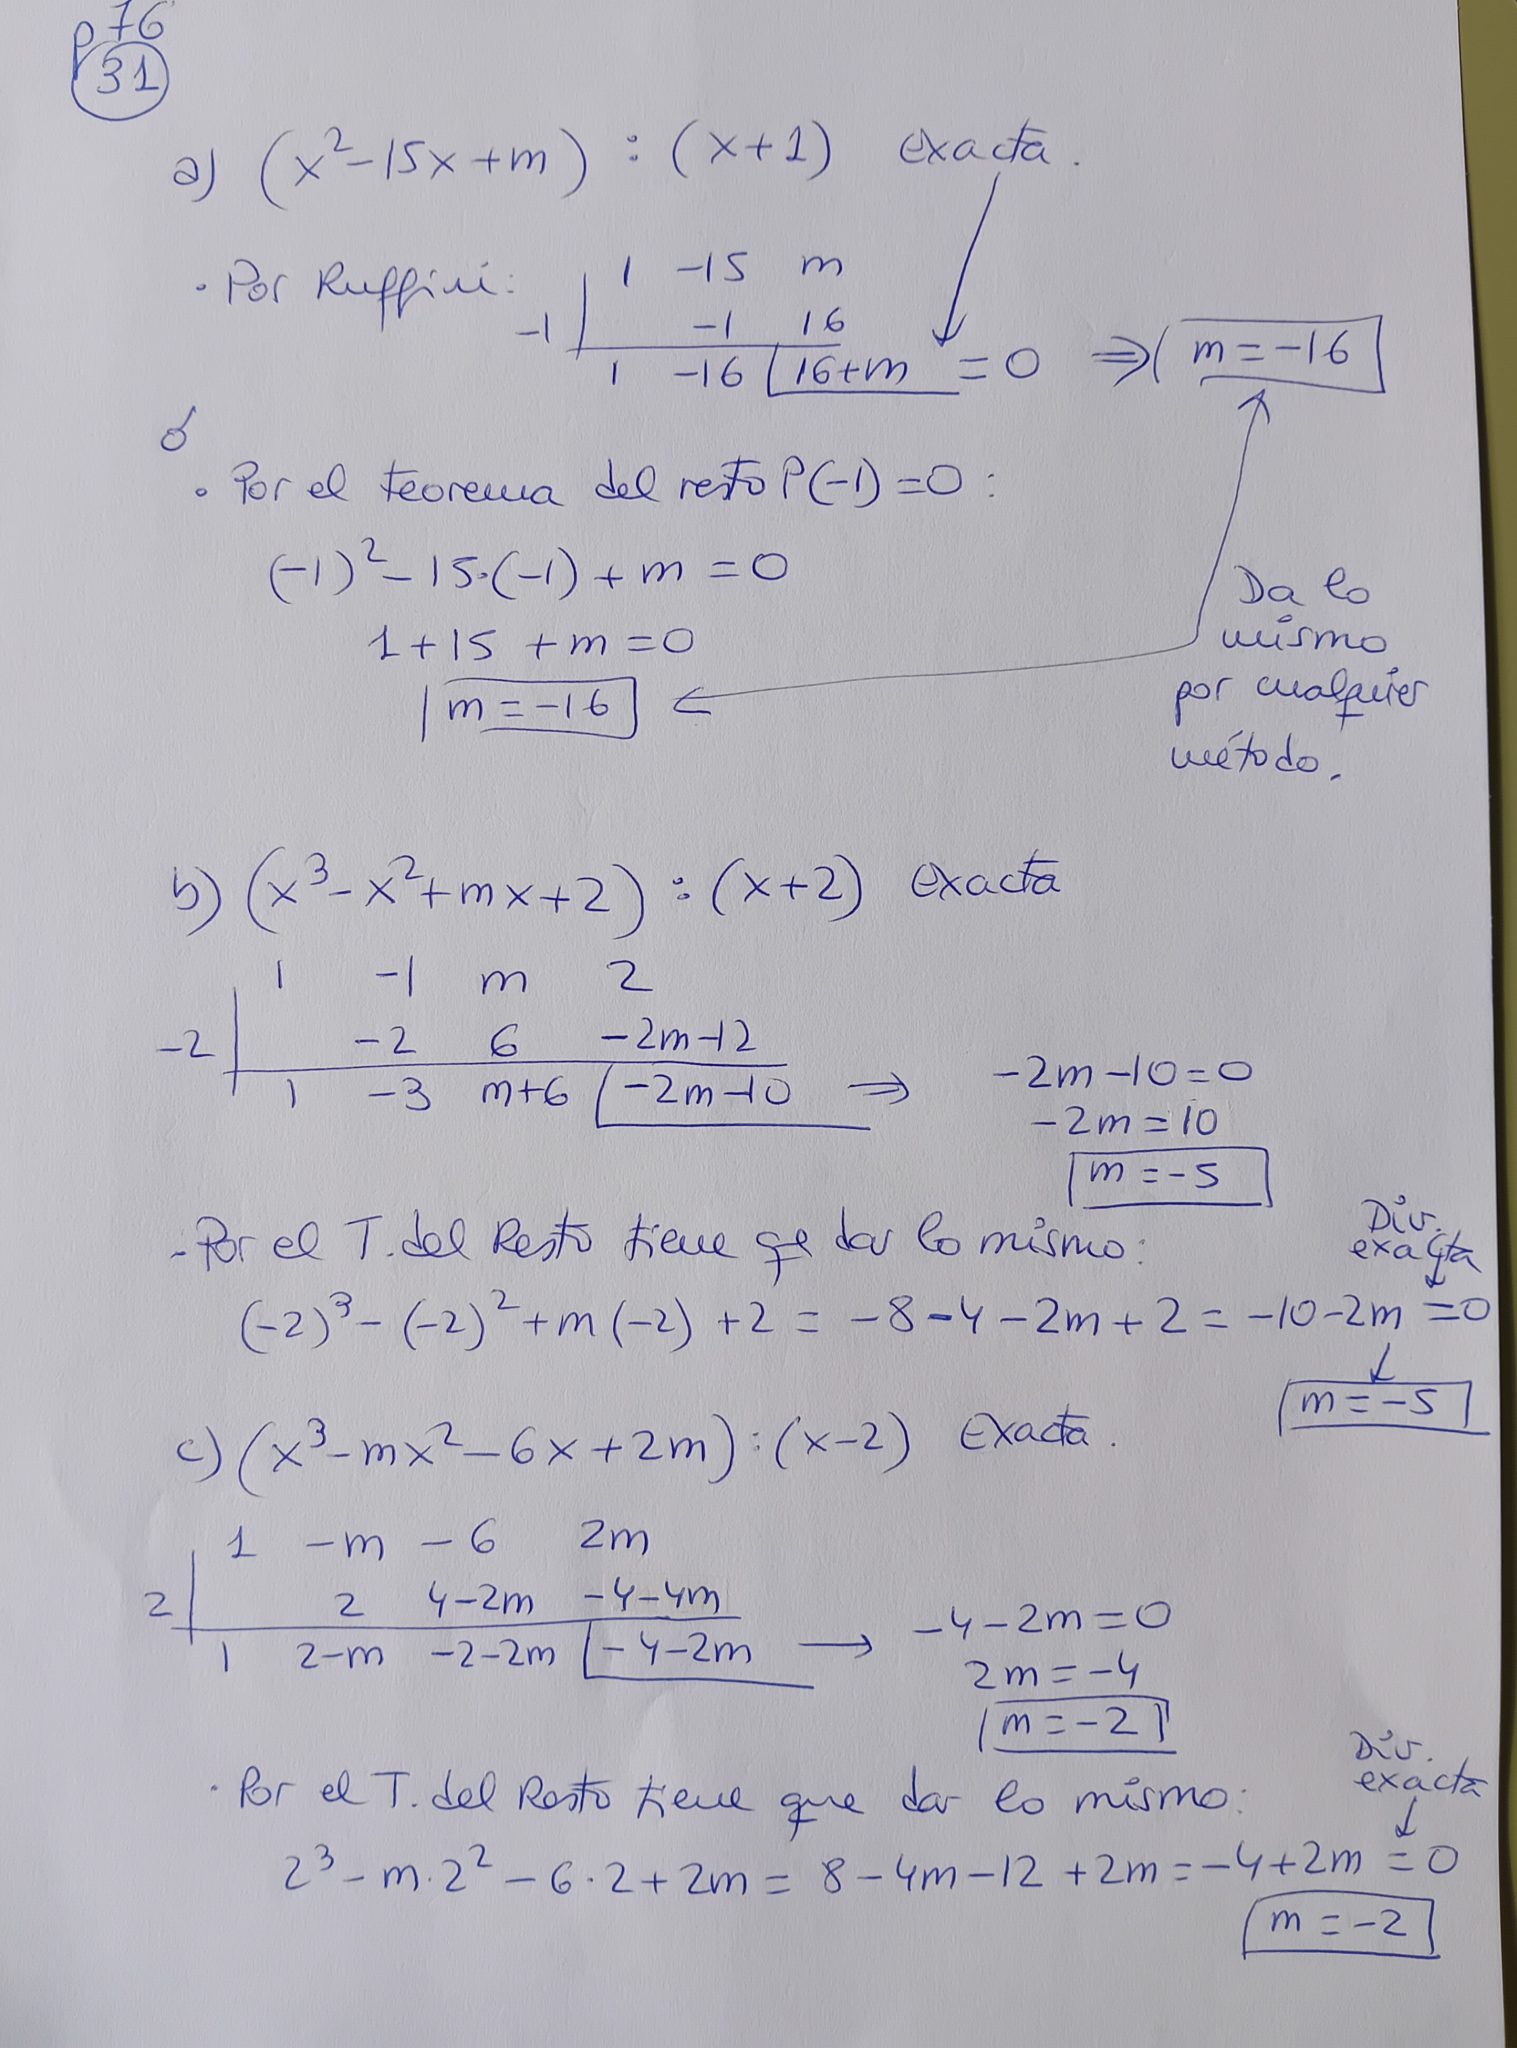 p 76
31
a) (x²-15x+m) : (x+1) exacta.
· Por Ruffini:
1 -15 m
-1 -1 16
1 -16 16+m = 0 ⇒ m=-16
ó
· Por el teorema del resto P(-1)=0:
(-1)²-15·(-1)+m=0
1+15+m=0
m=-16
Da lo
mismo
por cualquier
método.
b) (x³-x²+mx+2) : (x+2) exacta
1 -1 m 2
-2 -2 6 -2m-12
1 -3 m+6 -2m-10 ⇒ -2m-10=0
-2m=10
m=-5
- Por el T. del Resto tiene qe dar lo mismo:
Div.
exacta
(-2)³-(-2)²+m(-2)+2 = -8-4-2m+2 = -10-2m =0
m=-5
c) (x³-mx²-6x+2m):(x-2) Exacta.
1 -m -6 2m
2 2 4-2m -4-4m
1 2-m -2-2m -4-2m → -4-2m=0
2m=-4
m=-2
· Por el T. del Resto tiene que dar lo mismo:
Div.
exacta
2³-m·2²-6·2+2m = 8-4m-12+2m=-4+2m =0
m=-2